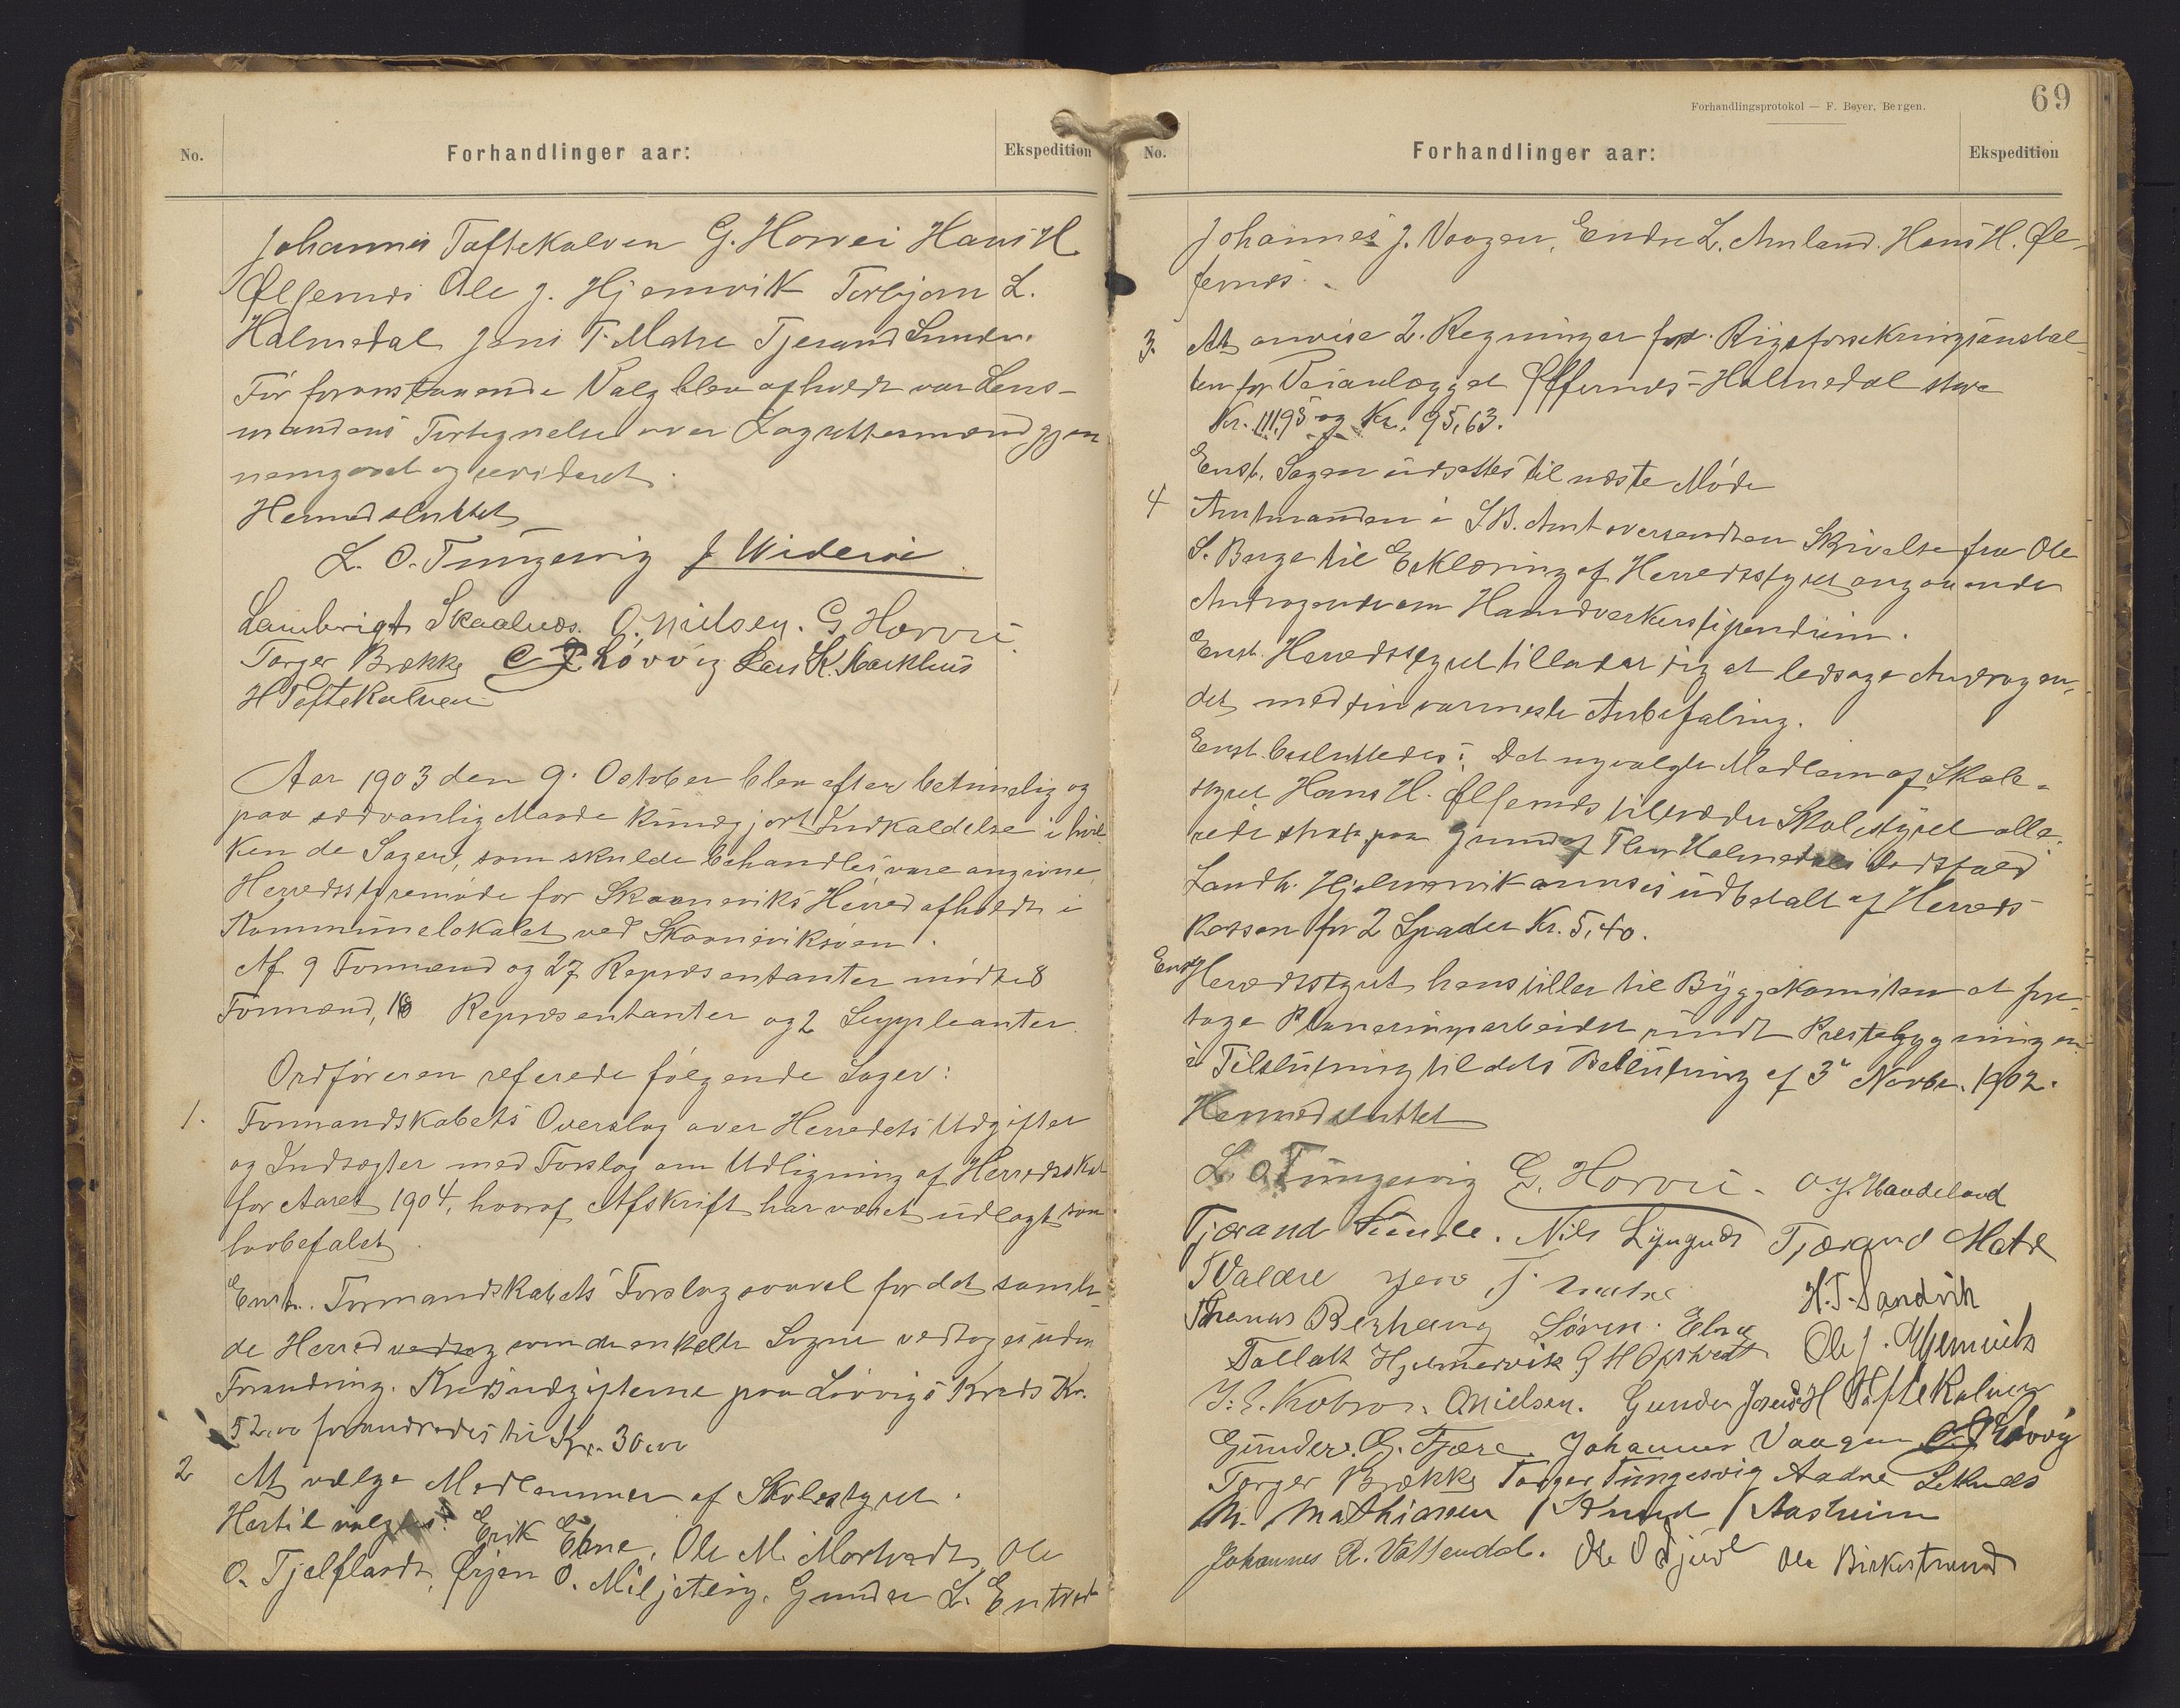 No.
Forhandlinger aar:
Ekspedition
Johannes Taftekalven G. Horvei Hans H.
Ølfernes Ole J. Hjemvik Torbjørn L.
Halmedal Jens T. Matre Tjerand Sunde.
Før foranstaaende Valg blev afholdt var Lens-
mandens Fortegnelse over Lagrettesmænd gjen
nemgaaet og revideret.
Hermed sluttet
L. O. Tungesvig J Widerøe
Lambrigt Skaalnes. O. Nielsen. G Horvei
Torger Brekke C J Løvvig Lars K. Markhus
H Taftekalven
Aar 1903 den 9. October blev efter betimelig og
paa sædvanlig Maade kundgjort Indkaldelse i hvil
ken de Sager, som skulde behandles, vare angivne
Herredsstyremøde for Skaaneviks Herred afholdt i
Kommunelokalet ved Skaaneviksøen.
Af 9 Formænd og 27 Repræsentanter mødte 8
Formænd, 18 Repræsentanter og 2 Suppleanter.
Ordføreren referede følgende Sager:
1. Formandskabets Overslag over Herredets Udgifter
og Indtægter med Forslag om Udligning af Herredsskat
for Aaret 1904, hvoraf Afskrift har været udlagt som
lovbefalet.
Enst. Formandskabets Forslag saavel for det samle-
de Herred vedtog som de enkelte Sogne vedtoges uden
Forandring. Kredsudgifterne paa Løvvigs Kreds Kr.
52,00 forandredes til Kr. 30,00
2 At vælge Medlemmer af Skolestyret.
Hertil valgtes: Erik Ebne, Ole M. Mortvedt, Ole
O. Tjelflaadt, Ørjan O. Miljeteig, Gunder L. Entvet
69
Forhandlingsprotokol — F. Beyer, Bergen.
No.
Forhandlinger aar:
Ekspedition
Johannes J. Vaagen, Endre L. Amland. Hans H. Øl-
fernes.
3. At anvise 2. Regninger fra Rigsforsikringsanstal-
ten for Veianlægget Ølfernes-Halmedal store
Kr. 111,95 og Kr. 95,63.
Enst. Sagen udsattes til næste Møde
4 Amtmanden i S.B. Amt oversendten Skrivelse fra Ole
S. Berge til Erklæring af Herredsstyret angaaende
Andragende om Haandverkerstipendium.
Enst. Herredsstyret tillader sig at ledsage Andragen-
det med sin varmeste Anbefaling.
Enst. besluttedes: Det nyvalgte Medlem af Skole-
styret Hans H. Ølfernes tiltræder Skolestyret alle-
rede strax paa Grund af Thor Halmedals Dødsfald
Landh. Hjelmervik anvises udbetalt af Herreds
kassen for 2 Spader Kr. 5,40.
Enst Herredsstyret henstiller til Byggekomiteen at fore-
tage Planeringsarbeidet rundt Prestebygningen
i Tilslutning til dets Beslutning af 3e Novbr. 1902.
Hermed sluttet
L. O Tungesvig G. Horvei. O. J. Haaheland
Tjærand Sunde. Nils Lyngnes Tjærand Matre
T Valdre Jens T. Matre H. T. Sandvik
Thomas Berhaug Søren. Ebne Ole J. Hjemvik
Tallak Hjelmervik G H Opstvedt
J. E. Kobro. O Nielsen. Gunder H Taftekalven
Gunder. G. Fjære. Johannes Vaagen C J Løvvig
Torger Brekke Torger Tungesvig Aadne Leknes
M. Mathiasen / Knud / Aasheim
Johannes R. Vattendal. Ole O Ole Birkestrand